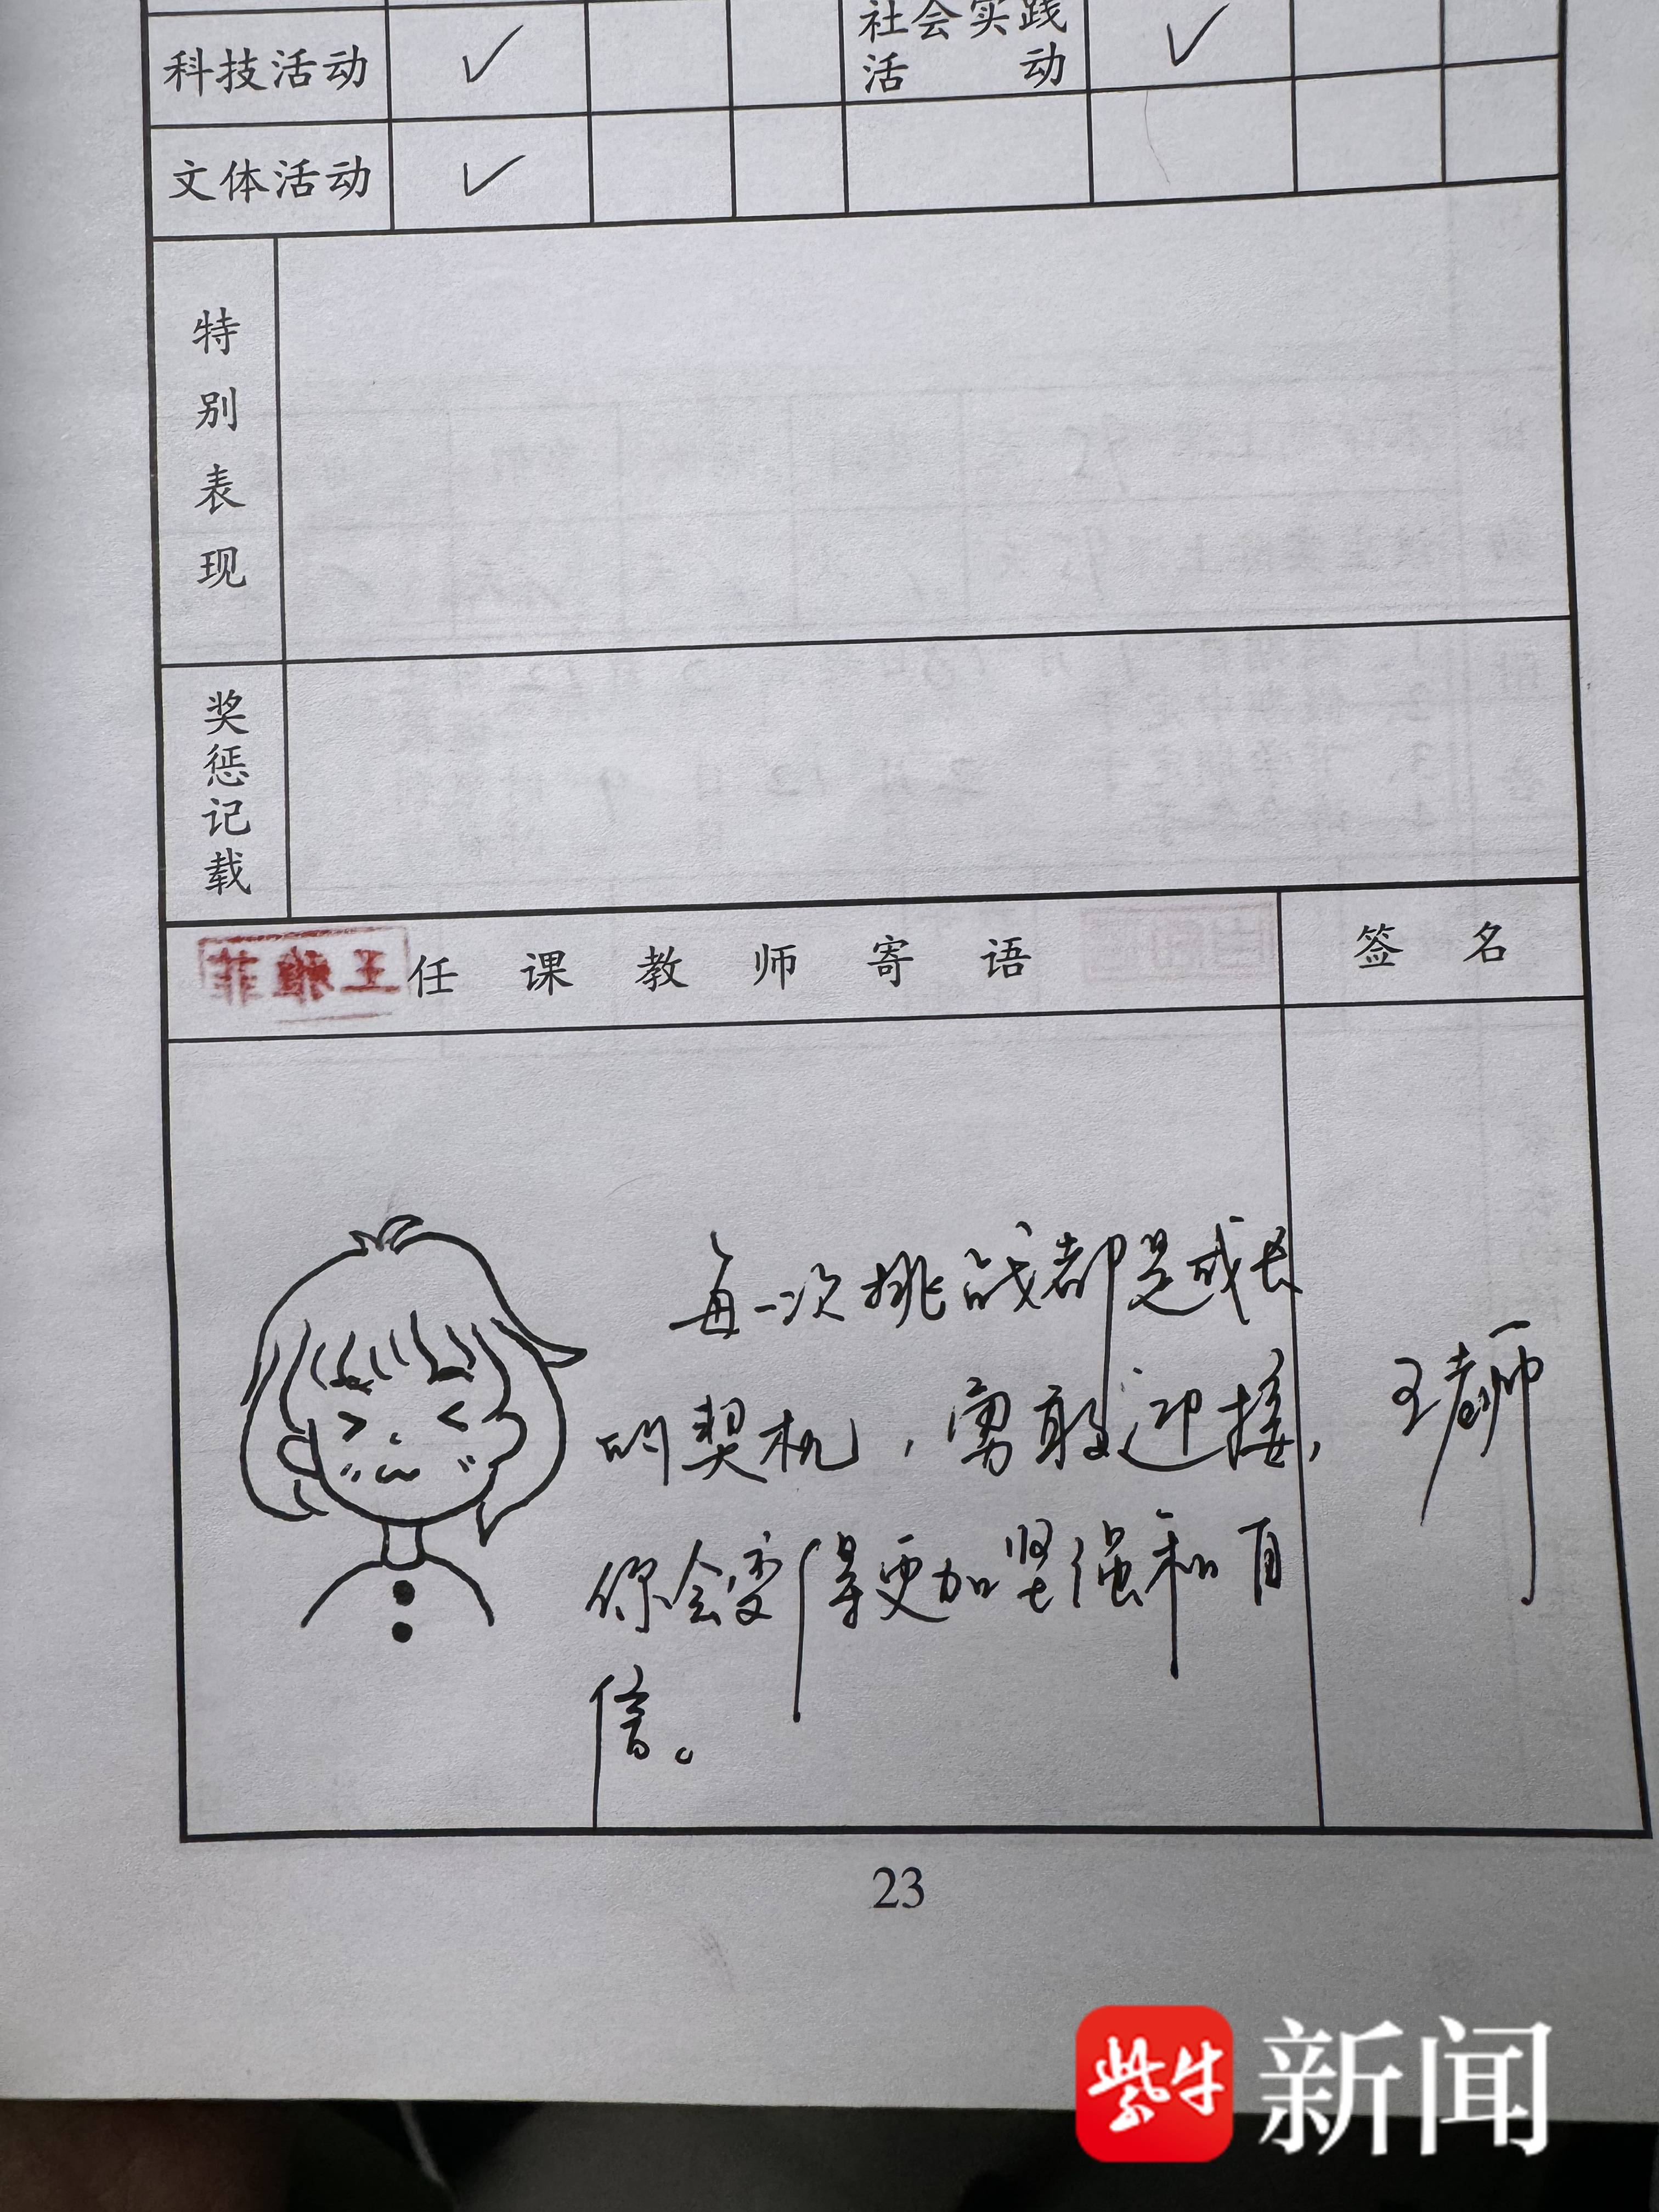 科技活动 ✓ 社会实践活动 ✓
文体活动 ✓
特别表现
奖惩记载
任课教师寄语 签名
每一次挑战都是成长
的契机，勇敢迎接，
你会变得更加坚强和自
信。
王老师
23
紫牛新闻